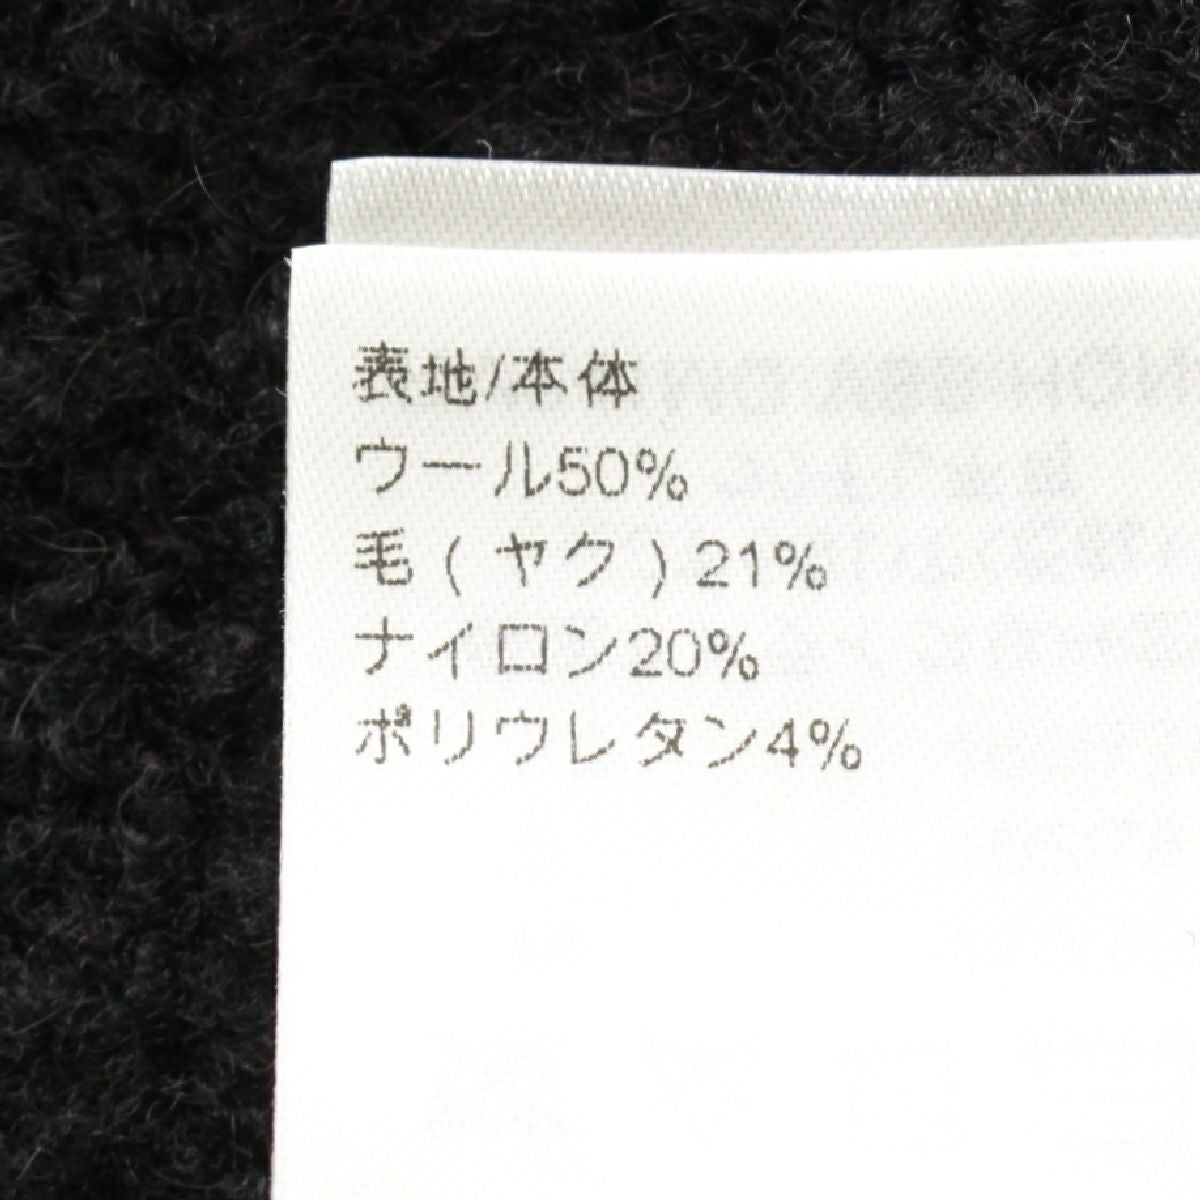 表地/本体
ウール50%
毛(ヤク)21%
ナイロン20%
ポリウレタン4%